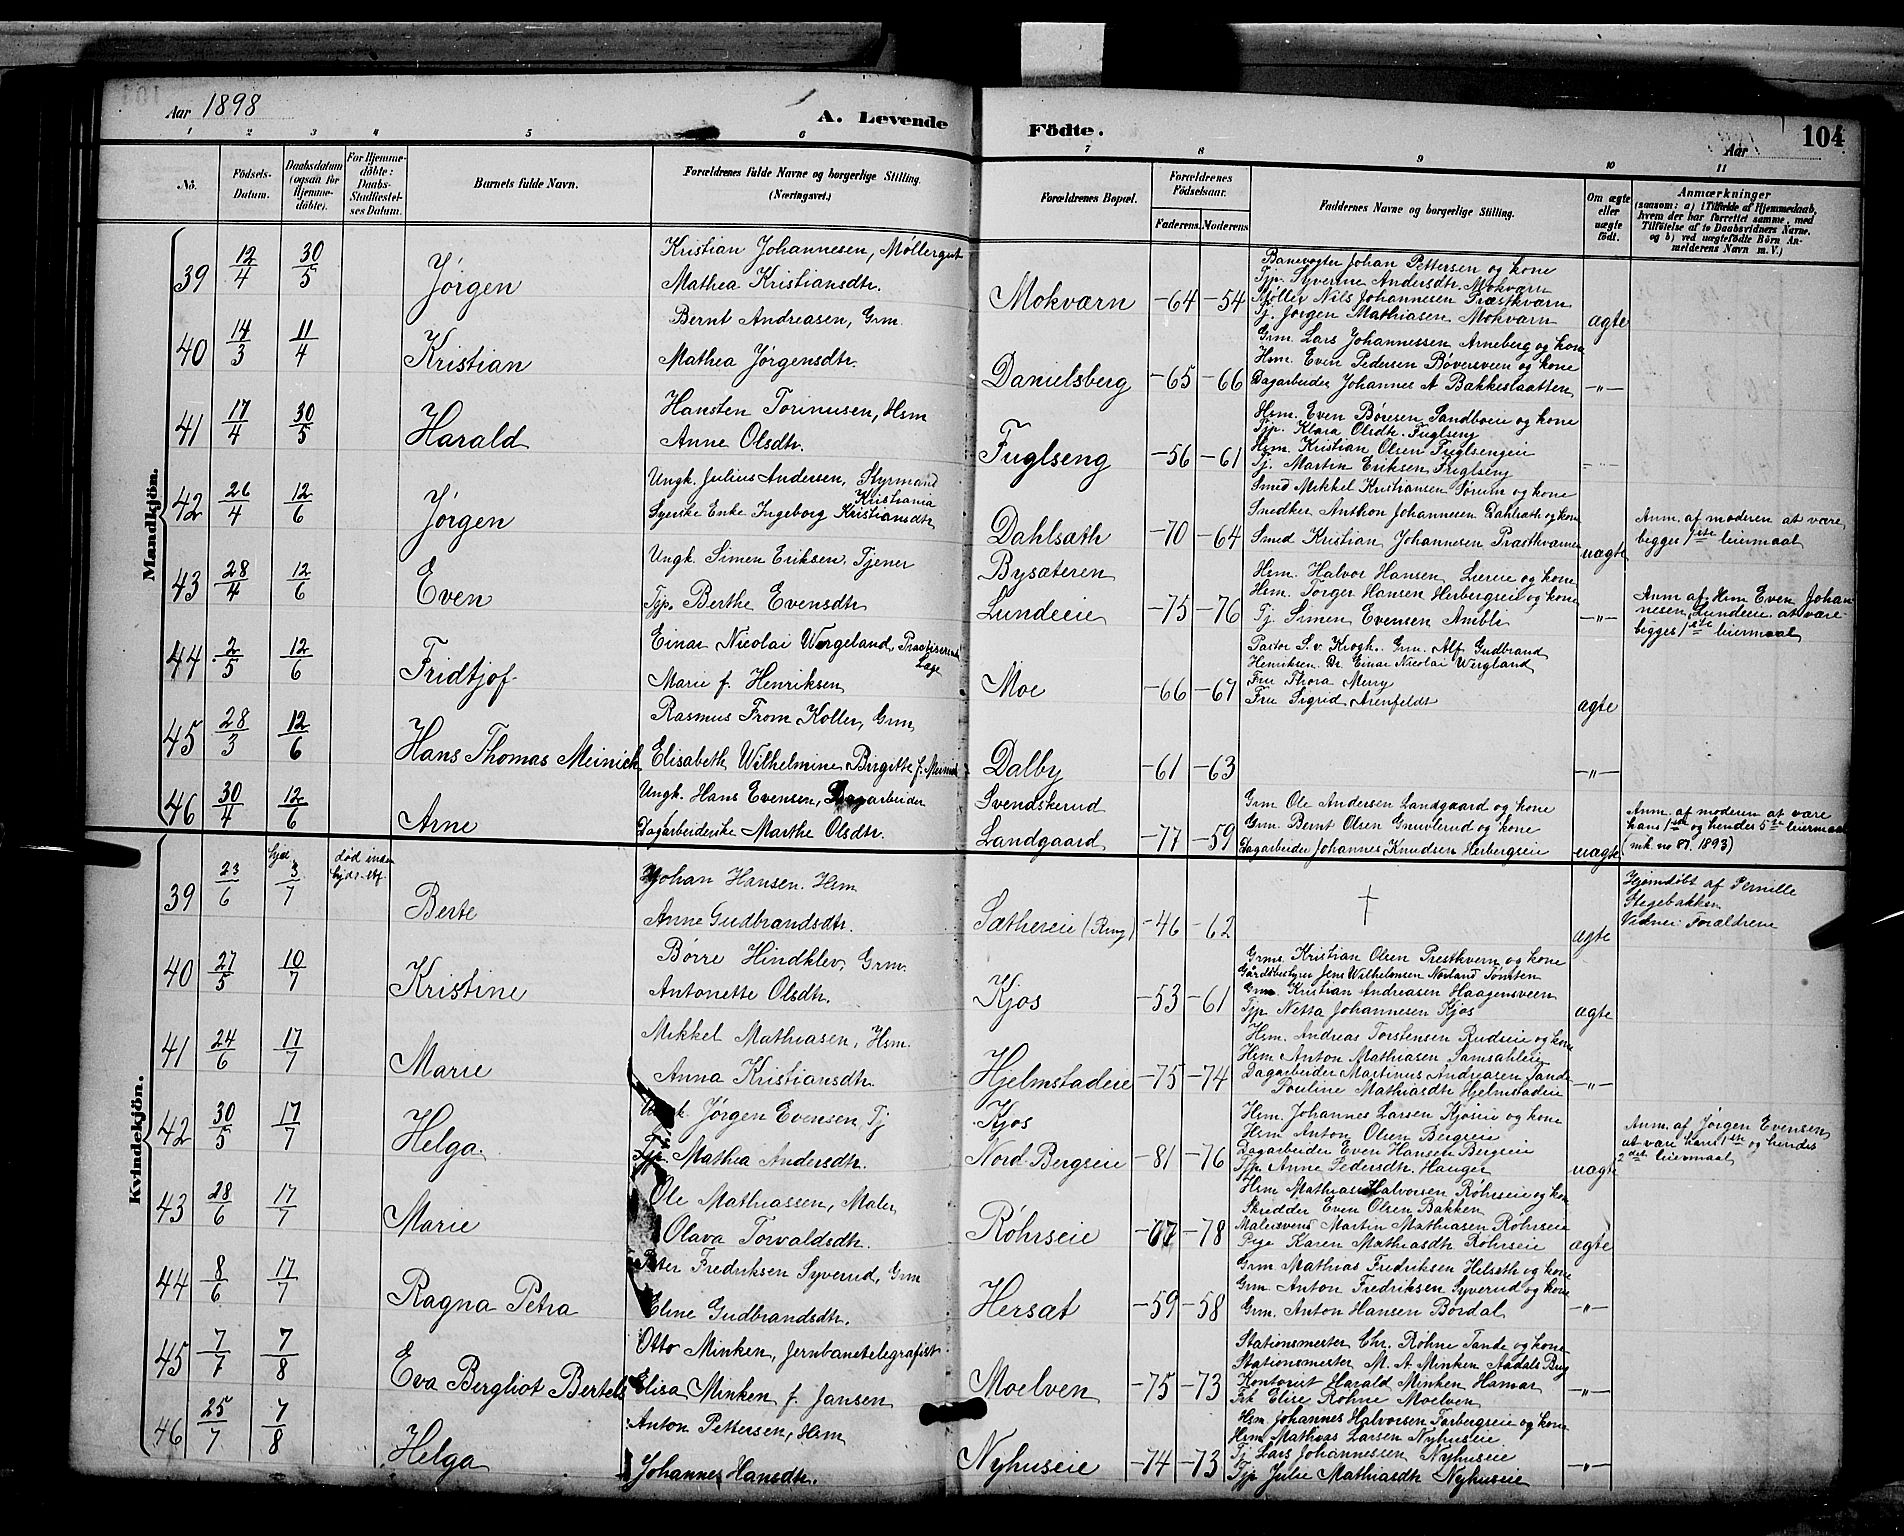 Aar 1898
A. Levende Födte.
104
Aar
1 2 3 4 5 6 7 8 9 10 11
No. Födsels-Datum. Daabsdatum (ogsaa for Hjemme-döbte). For Hjemme-döbte: Daabs-Stadfæstel-ses Datum. Barnets fulde Navn. Forældrenes fulde Navne og borgerlige Stilling. (Næringsvei.) Forældrenes Bopæl. Forældrenes Födselsaar. Faderens. Moderens. Faddernes Navne og borgerlige Stilling. Om ægte eller uægte født. Anmærkninger (saasom: a) i Tilfælde af Hjemmedaab, hvem der har forrettet samme, med Tilføielse af to Daabsvidners Navne, og b) ved uægtefødte Börn An-melderens Navn m. V.)
Mandkjön.
39 12/4 30/5 Jørgen Kristian Johannesen, Møllergut
Mathea Kristiansdtr. Mokværn -64 -54 ægte
Banevogter Johan Pettersen og kone
Tjp. Syverine Andersdtr. Mokværn
Møller Nils Johannesen Præstkværn
Tj. Jørgen Mathiasen Mokværn
40 14/3 11/4 Kristian Bernt Andreasen, Grm.
Mathea Jørgensdtr. Danielsberg -65 -66 -"-
Grm. Lars Johannessen Arneberg og kone
Hsm. Even Pedersen Bøversveen og kone
Dagarbeider Johannes A Bakkeslaatten
41 17/4 30/5 Harald Hansten Torinusen, Hsm
Anne Olsdtr. Fuglseng -56 -61 -"-
Hsm. Even Børesen Sandboeie og kone
Tjp. Klara Olsdtr. Fuglseng
Hsm. Kristian Olsen Fuglsengeie
Tj. Martin Eriksen Fuglseng
42 26/4 12/6 Jørgen Ungk. Julius Andersen, Styrmand
Kristiania
Syerske Enke Ingeborg Kristiansdtr. Dahlsæth -70 -64 uægte
Smed Mikkel Kristiansen Sørum og kone
Snedker Anthon Johannesen Dahlsæth og kone
Smed Kristian Johannesen Præstkværn
Anm. af moderen at være
begges 1ste leiermaal
43 28/4 12/6 Even Ungk. Simen Eriksen, Tjener Bysæteren
Tjp. Berthe Evensdtr Lundeeie -75 -76 -"-
Hsm. Halvor Hansen Lieeie og kone
Hsm. Torger Hansen Herbergseie og kone
Tj. Simen Evensen Ambli
Anm. af Hsm Even Johan-
nesen Lundeeie at være
begges 1ste leiermaal
44 2/5 12/6 Fridtjof Einar Nicolai Wergeland, Practiserende
Læge
Marie f. Henriksen Moe -66 -67 ægte
Pastor S. v. Krogh. Grm. Alf. Gudbrand
Henriksen. Dr. Einar Nicolai Wergland
Fru Thora Merry
Fru Sigrid Arenfeldt
45 28/3 12/6 Hans Thomas Meinich Rasmus From Koller, Grm
Elisabeth Wilhelmine Birgitte f. Meinich Dalby -61 -63 -"-
46 30/4 12/6 Arne Ungk. Hans Evensen, Dagarbeider Svendskerud
Dagarbeiderske Marthe Olsdtr. Landgaard -77 -59 uægte
Grm Ole Andersen Landgaard og kone
Grm. Bernt Olsen Gnuvlerud og kone
Dagarbeider Johannes Knudsen Herbergseie
Anm. af moderen at være
hans 1ste og hendes 5te leiermaal
(mk. no 87. 1893)
Kvindekjön.
39 23/6 hjd. 3/7 død inden hjd. stf. Berte Johan Hansen. Hsm
Anne Gudbrandsdtr. Sæthereie (Ring) -46 -62 † ægte
Hjemdøbt af Pernille
Stegebakken
Vidner: Forældrene
40 27/5 10/7 Kristine Børre Hindklev, Grm.
Antonette Olsdtr. Kjos -53 -61 ægte
Grm. Kristian Olsen Prestkvern og kone
Gårdbestyrer Jens Wilhelmsen Norland Tomten
Grm. Kristian Andreasen Haagensveen
Tjp. Netta Johannesen Kjos
41 24/6 17/7 Marie Mikkel Mathiasen, Hsm.
Anna Kristiansdtr. Hjelmstadeie -75 -74 -"-
Hsm. Andreas Torstensen Rudseie og kone
Hsm. Anton Mathiasen Samsahleie
Dagarbeider Martinus Andreasen Tande
Pouline Mathiasdtr Hjelmstadeie
42 30/5 17/7 Helga. Ungk. Jørgen Evensen, Tj Kjos
Tjp. Mathea Andersdtr. Nord Bergseie -81 -76 uægte
Hsm. Johannes Larsen Kjøseie og kone
Hsm Anton Olsen Bergseie
Dagarbeider Even Hansen Bergseie
Tjp Anne Pedersdtr. Hauger
Anm. af Jørgen Evensen
at være hans 1ste og hendes
2det leiermaal
43 28/6 17/7 Marie Ole Mathiassen, Maler
Olava Torvaldsdtr. Røhrseie -67 -78 ægte
Hsm Mathias Halvorsen Røhrseie og kone
Skredder Even Olsen Bakken
Malersvend Martin Mathiasen Røhrseie
Pige Karen Mathiasdtr Røhrseie
44 8/6 17/7 Ragna Petra Peter Fredriksen Syverud, Grm
Eline Gudbrandsdtr. Hersæt -59 -58 -"-
Grm Mathias Fredriksen Helseth og kone
Grm. Anton Fredriksen Syverud og kone
Grm. Anton Hansen Bördal
45 7/7 7/8 Eva Bergliot Bertels Otto Minken, Jernbanetelegrafist
Elisa Minken f. Jansen Moelven -75 -73 -"-
Stationsmester Chr. Röhne Tande og kone
Stationsmester M. A Minken Aadals Brug
Kontorist Harald Minken Hamar
Frk Elise Röhne Moelven
46 25/7 7/8 Helga Anton Pettersen, Hsm
Johannes Hansdtr. Nyhuseie -74 -73 -"-
Hsm. Johannes Halvorsen Farbergseie og kone
Hsm Mathias Larsen Nyhuseie
Tj Lars Johannessen Nyhuseie
Tjp Julie Mathiasdtr Nyhuseie